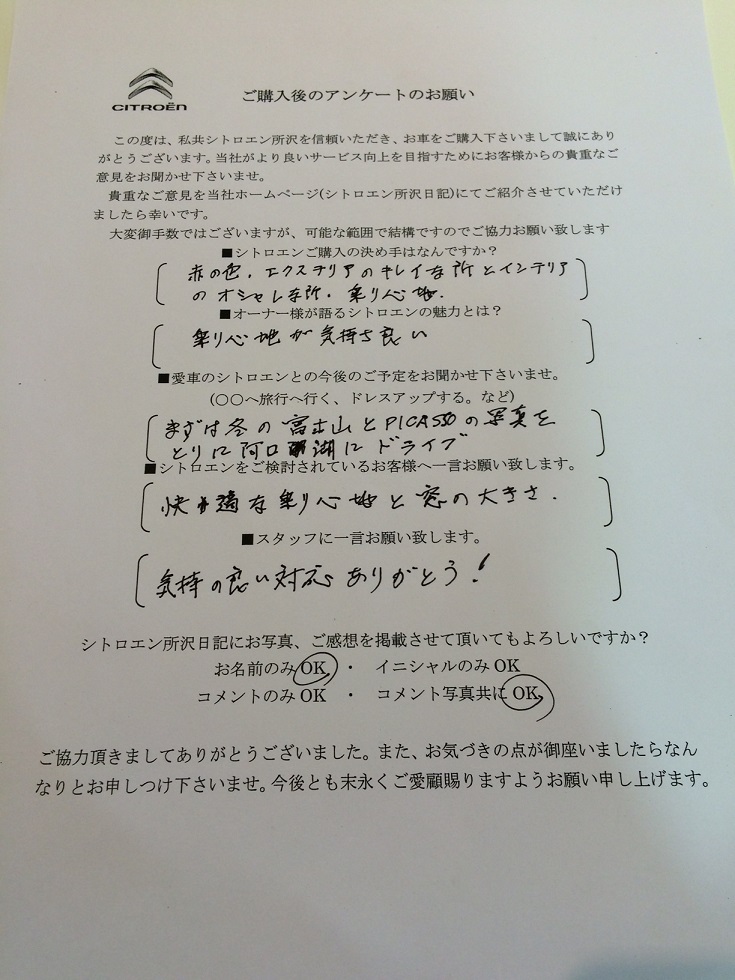 CITROËN
ご購入後のアンケートのお願い
この度は、私共シトロエン所沢を信頼いただき、お車をご購入下さいまして誠にあり
がとうございます。当社がより良いサービス向上を目指すためにお客様からの貴重なご
意見をお聞かせ下さいませ。
貴重なご意見を当社ホームページ(シトロエン所沢日記)にてご紹介させていただけ
ましたら幸いです。
大変御手数ではございますが、可能な範囲で結構ですのでご協力お願い致します
■シトロエンご購入の決め手はなんですか?
赤の色、エクステリアのキレイな所とインテリア
のオシャレな所、乗り心地.
■オーナー様が語るシトロエンの魅力とは?
乗り心地が気持ち良い
■愛車のシトロエンとの今後のご予定をお聞かせ下さいませ。
(〇〇へ旅行へ行く、ドレスアップする。など)
まずは冬の富士山とPICASSOの写真を
とりに河口湖にドライブ
■シトロエンをご検討されているお客様へ一言お願い致します。
快適な乗り心地と窓の大きさ.
■スタッフに一言お願い致します。
気持の良い対応ありがとう!
シトロエン所沢日記にお写真、ご感想を掲載させて頂いてもよろしいですか?
お名前のみOK ・ イニシャルのみOK
コメントのみOK ・ コメント写真共にOK
ご協力頂きましてありがとうございました。また、お気づきの点が御座いましたらなん
なりとお申しつけ下さいませ。今後とも末永くご愛顧賜りますようお願い申し上げます。